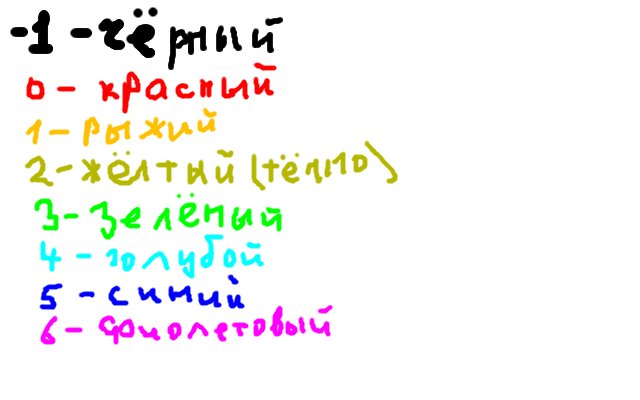 -1 - чёрный
0 - красный
1 - рыжий
2 - жёлтый (тёпло)
3 - зелёный
4 - голубой
5 - синий
6 - фиолетовый